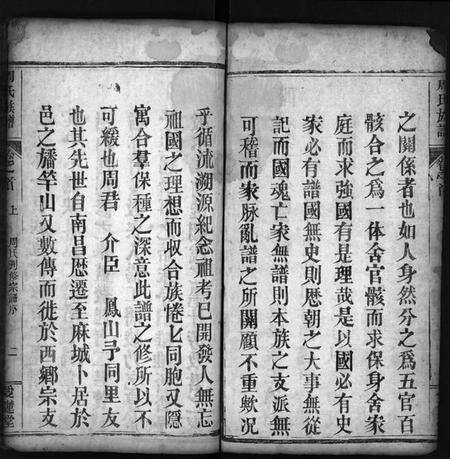 之關係者也如人身然分之爲五官百
骸合之爲一体舍官骸而求保身舍家
庭而求強國有是理哉是以國必有史
家必有譜國無史則歷朝之大事無從
記而國魂亡家無譜則本族之支派無
可稽而家脉亂譜之所關顧不重歟况
乎循流溯源紀念祖考已開發人無忘
祖國之理想而收合族惓七同胞又隱
寓合羣保種之深意此譜之修所以不
可緩也周君 介臣 鳳山予同里友
也其先世自南昌歷遷至麻城卜居於
邑之旛竿山又數傳而徙於西鄉宗支
周氏族譜
卷之首
上
周氏創修宗譜序
二
愛蓮堂